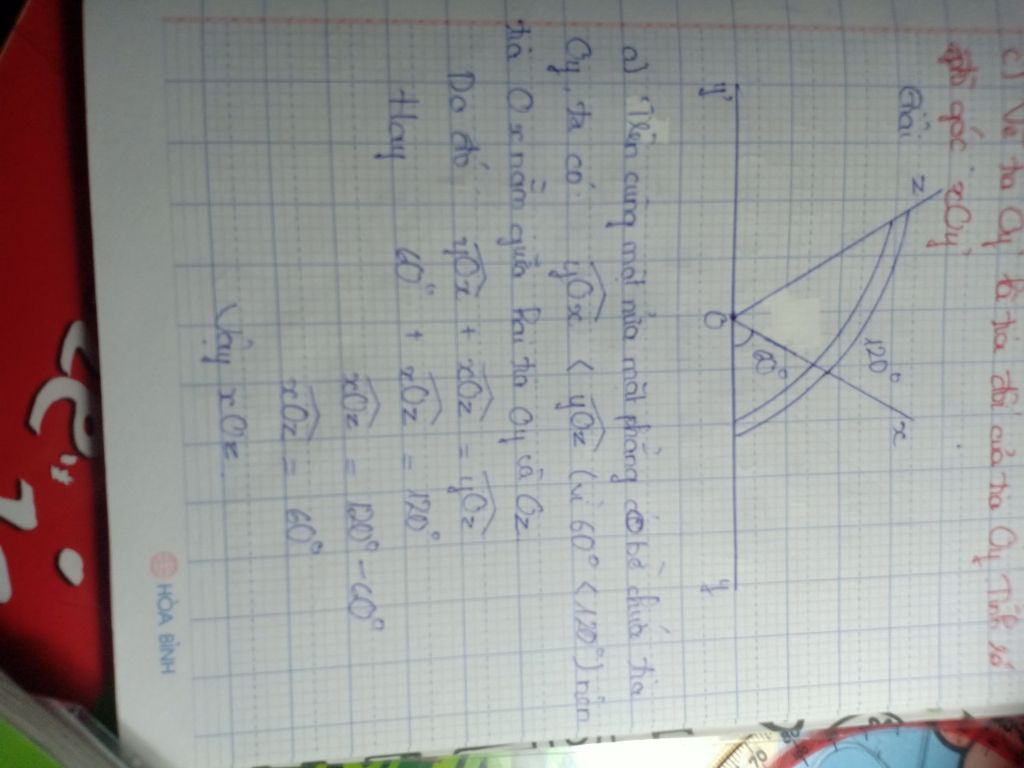 c) Vẽ tia Oy' là tia đối của tia Oy Tính số
góc xOy'
Giải
z
x
120°
60°
y'
O
y
a) Trên cùng một nửa mặt phẳng có bờ chứa tia
Oy, ta có yOx < yOz (vì 60° < 120°) nên
tia Ox nằm giữa hai tia Oy và Oz
Do đó yOx + xOz = yOz
Hay 60° + xOz = 120°
xOz = 120° - 60°
xOz = 60°
Vậy xOz
HÒA BÌNH